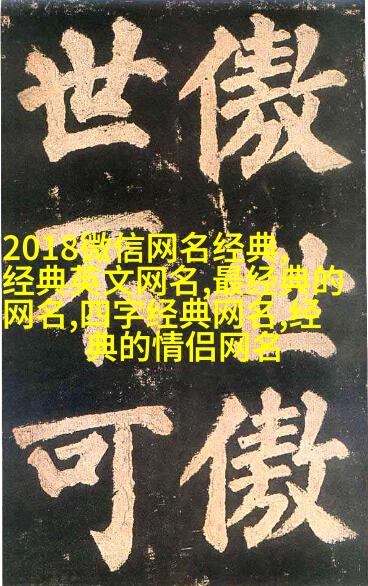 傲世傲
世不可
2018微信网名经典,
经典英文网名,最经典的
网名,四字经典网名,经
典的情侣网名